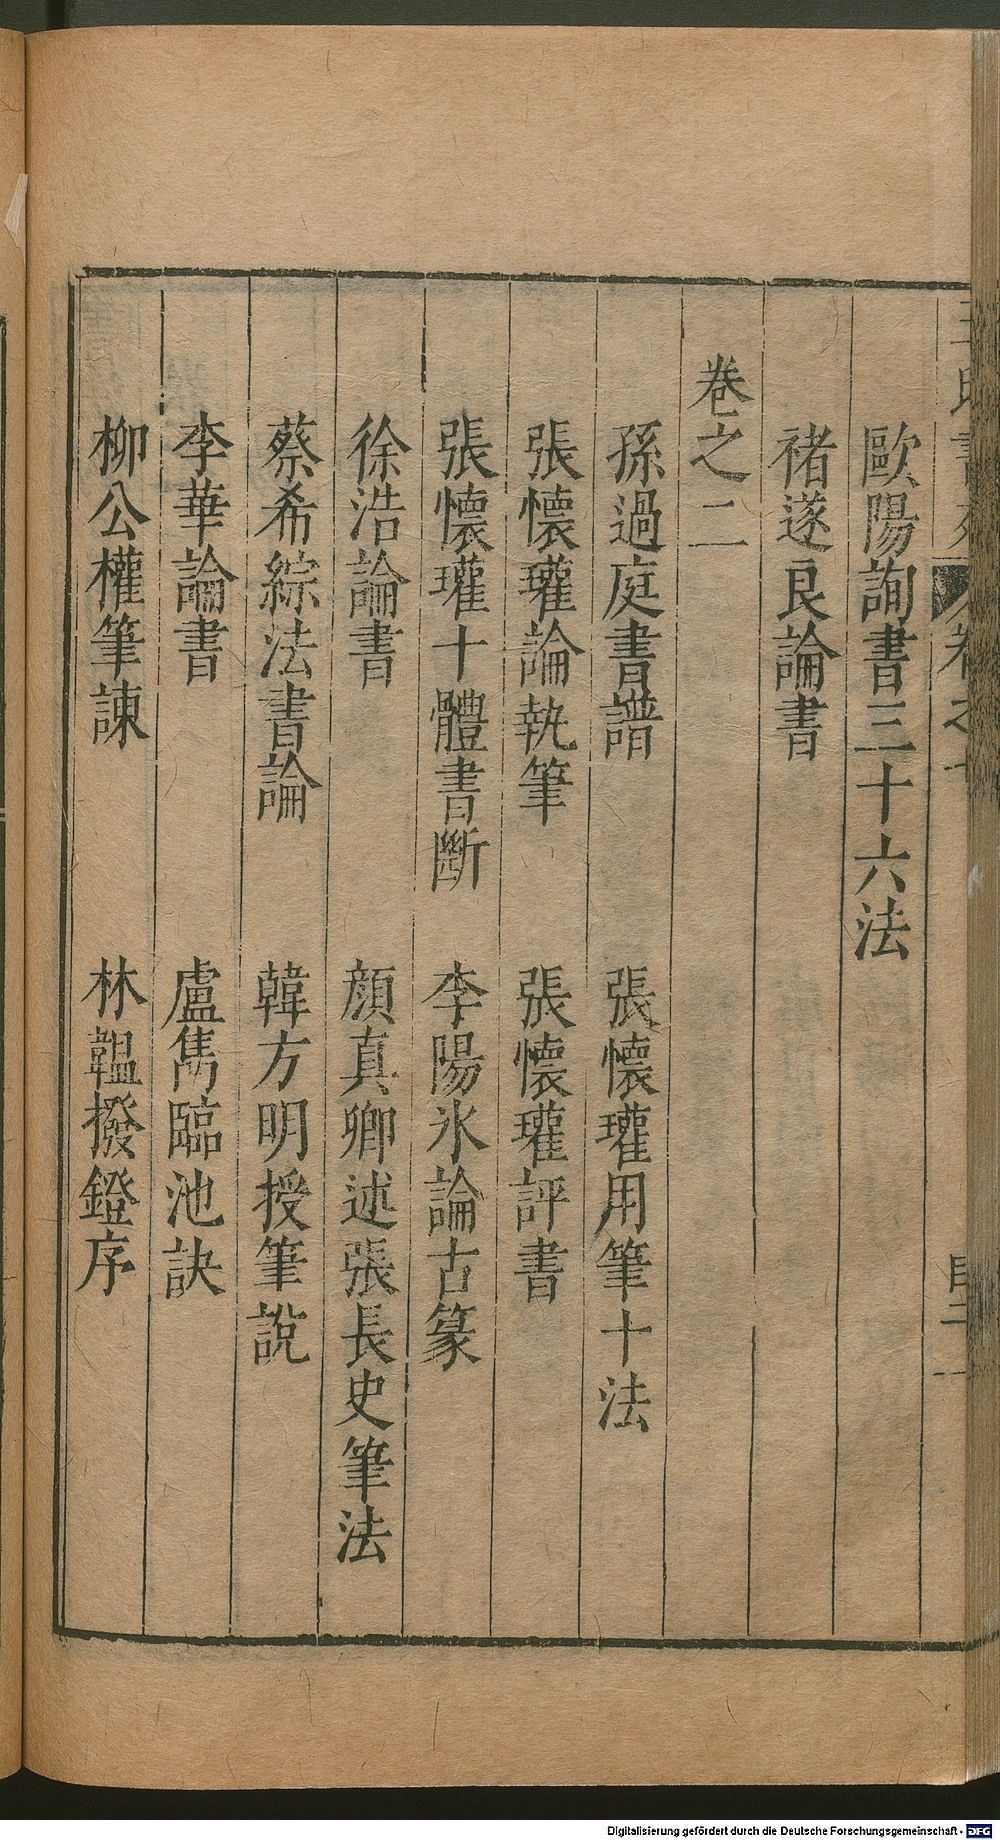 歐陽詢書三十六法
褚遂良論書
卷之二
孫過庭書譜　張懷瓘用筆十法
張懷瓘論執筆　張懷瓘評書
張懷瓘十體書斷　李陽氷論古篆
徐浩論書　顔真卿述張長史筆法
蔡希綜法書論　韓方明授筆說
李華論書　盧雋臨池訣
柳公權筆諫　林韞撥鐙序
Digitalisierung gefördert durch die Deutsche Forschungsgemeinschaft - DFG